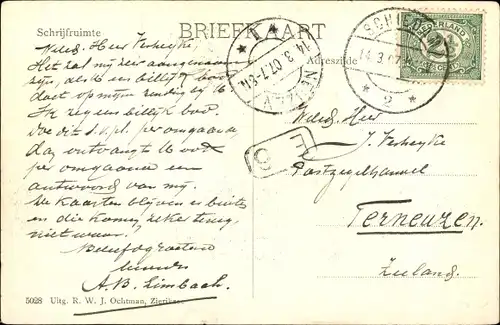 BRIEFKAART
Schrijfruimte
Adreszijde
Weled. Heer Verheyke,
Het zal mij zeer aangenaam
zijn, als U een billijk bod
doet op mijne zending bij U
Ik zeg een billijk bod.
Doe dit s.v.pl. per omgaande
dan ontvangt U ook
per omgaande een
antwoord van mij.
De kaarten blijven er buiten
en die komen zeker terug,
niet waar?
Beleefd groetend
A.B. Limbach.
SCHIEDAM
14.3.07
* 2 *
NEUZEN
14.3.07.7-8
NEDERLAND
2½
CENT
Weled. Heer
J. Verheyke
Postzegelhandel
Terneuzen.
Zeeland.
5028 Uitg. R. W. J. Ochtman, Zierikzee